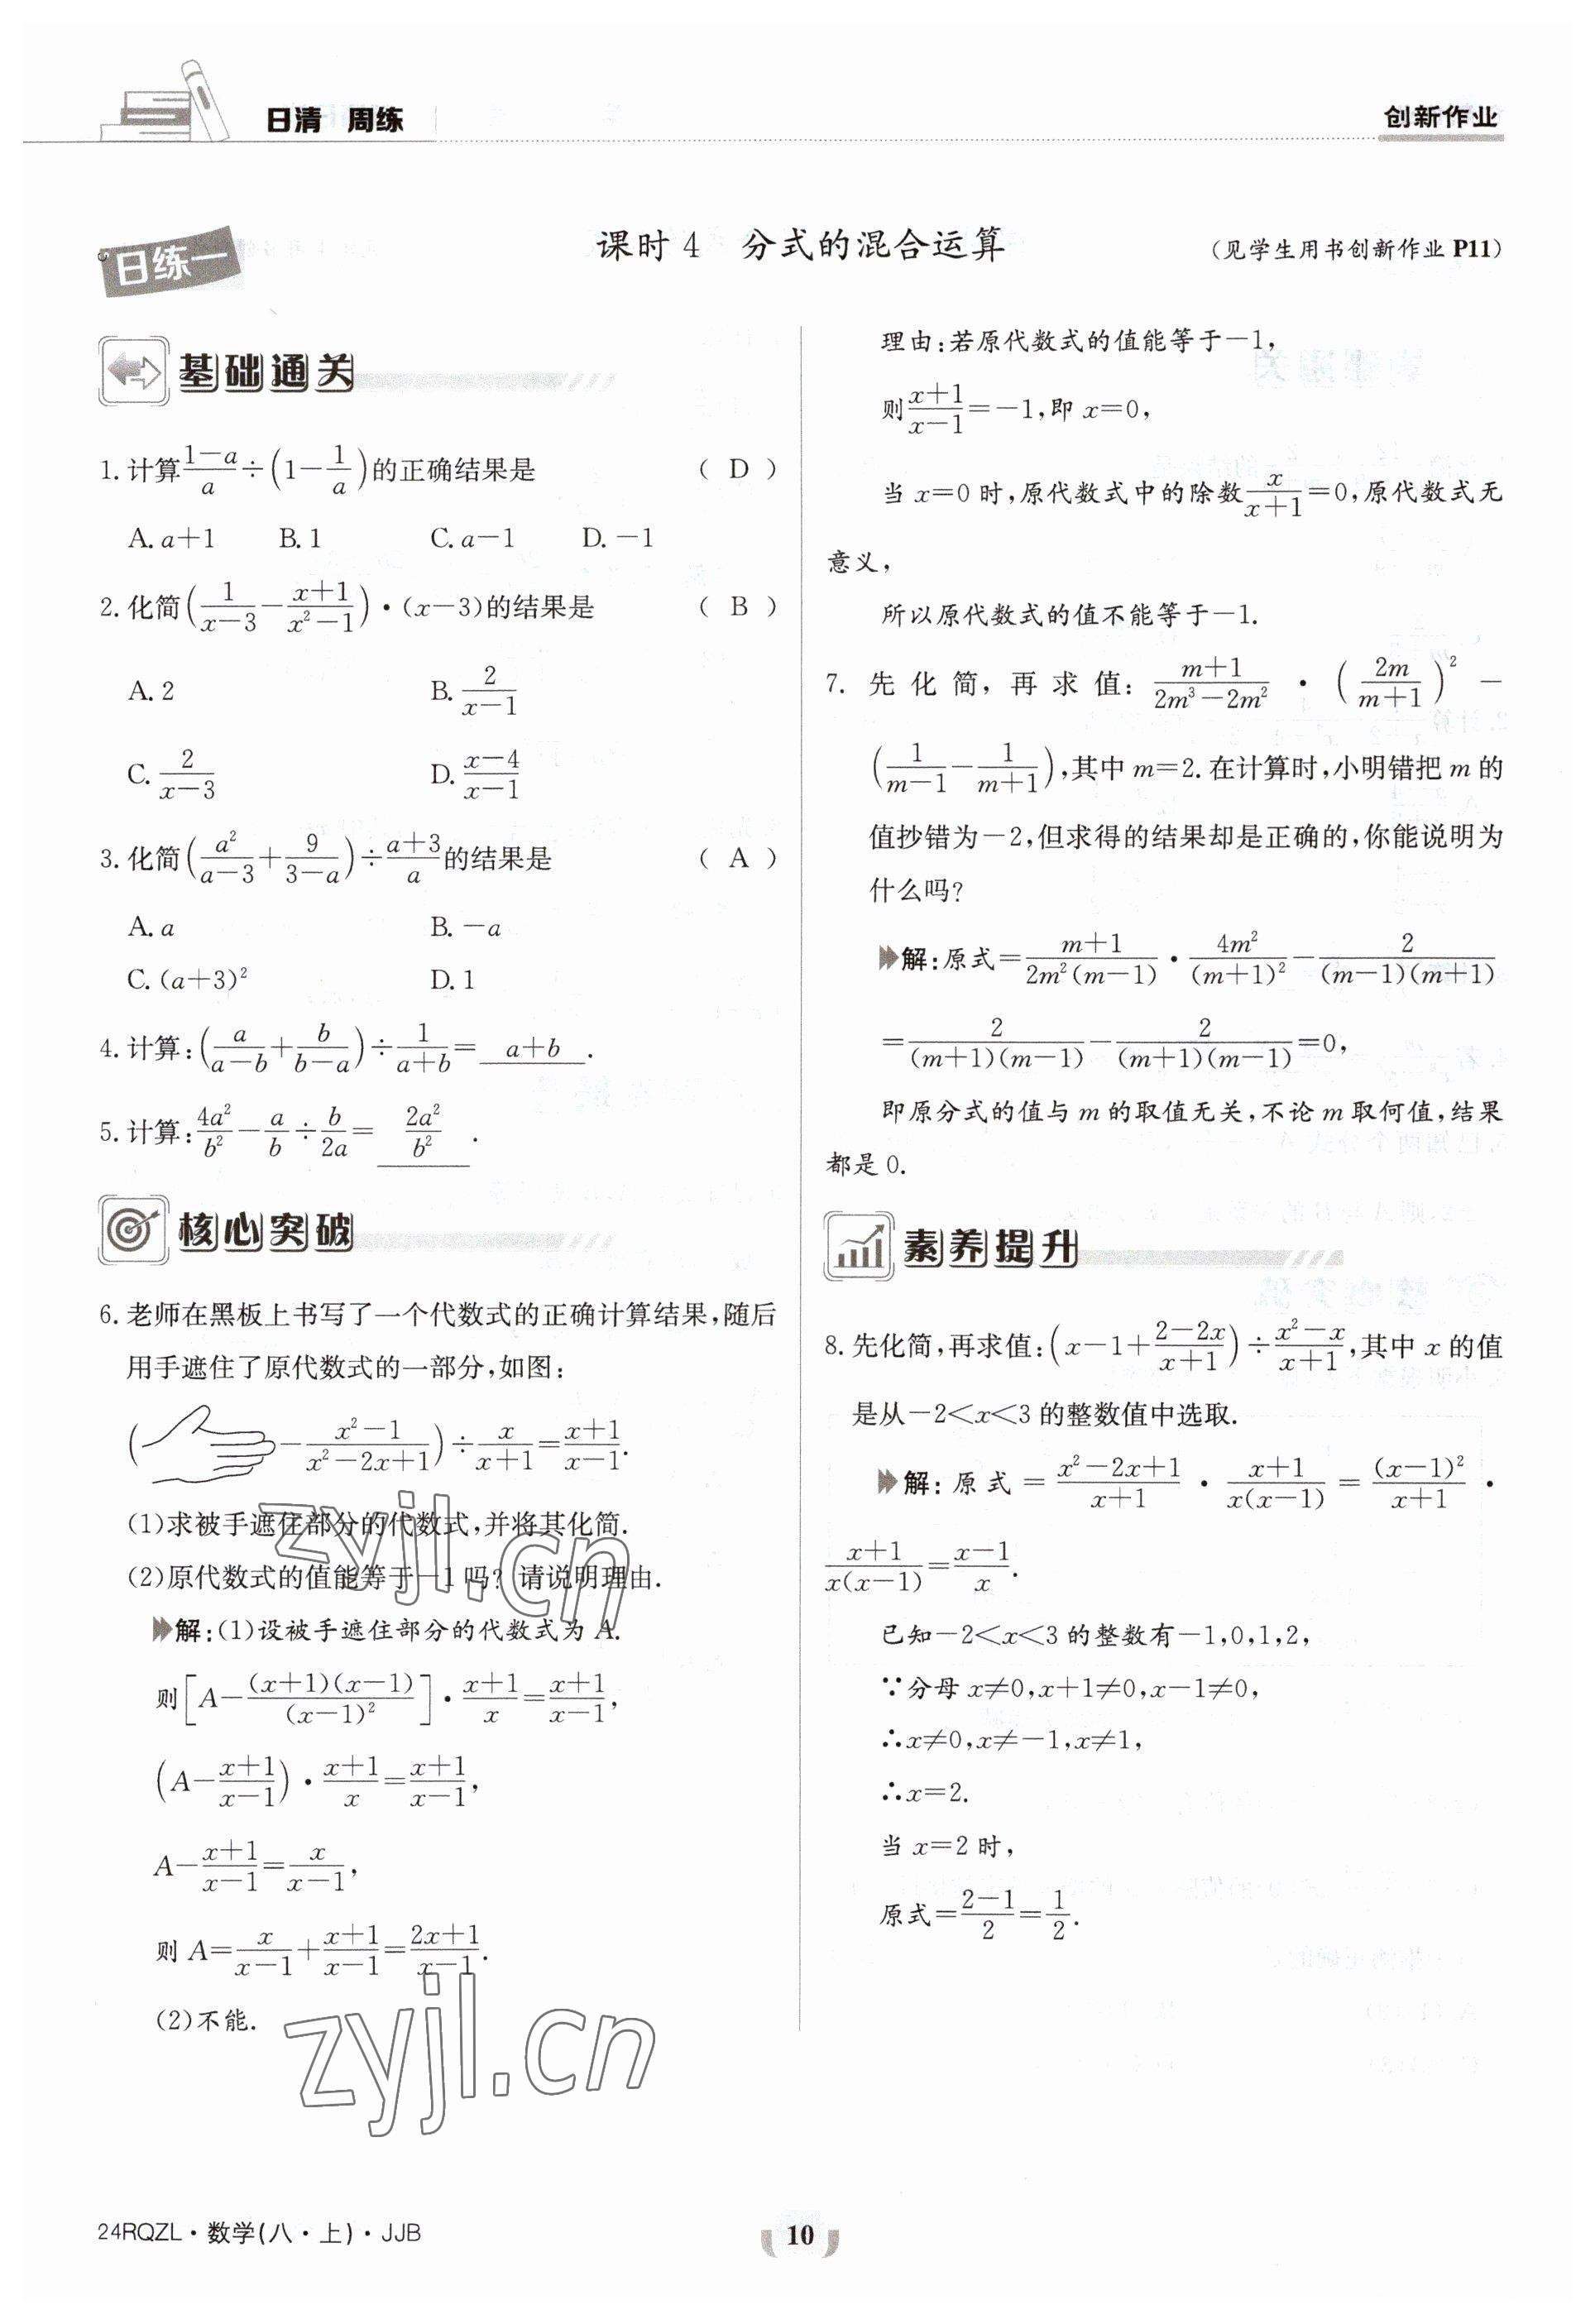 日清 周练
创新作业
日练一
课时4 分式的混合运算
(见学生用书创新作业 P11)
基础通关
1. 计算\frac{1-a}{a}÷(1-\frac{1}{a})的正确结果是 ( D )
A. a+1 B. 1 C. a-1 D. -1
2. 化简(\frac{1}{x-3}-\frac{x+1}{x^2-1})·(x-3)的结果是 ( B )
A. 2 B. \frac{2}{x-1}
C. \frac{2}{x-3} D. \frac{x-4}{x-1}
3. 化简(\frac{a^2}{a-3}+\frac{9}{3-a})÷\frac{a+3}{a}的结果是 ( A )
A. a B. -a
C. (a+3)^2 D. 1
4. 计算:(\frac{a}{a-b}+\frac{b}{b-a})÷\frac{1}{a+b}= a+b .
5. 计算:\frac{4a^2}{b^2}-\frac{a}{b}÷\frac{b}{2a}= \frac{2a^2}{b^2} .
核心突破
6. 老师在黑板上书写了一个代数式的正确计算结果,随后
用手遮住了原代数式的一部分,如图:
( -\frac{x^2-1}{x^2-2x+1})÷\frac{x}{x+1}=\frac{x+1}{x-1}.
(1)求被手遮住部分的代数式,并将其化简.
(2)原代数式的值能等于-1吗? 请说明理由.
解:(1)设被手遮住部分的代数式为 A.
则[A-\frac{(x+1)(x-1)}{(x-1)^2}]·\frac{x+1}{x}=\frac{x+1}{x-1},
(A-\frac{x+1}{x-1})·\frac{x+1}{x}=\frac{x+1}{x-1},
A-\frac{x+1}{x-1}=\frac{x}{x-1},
则 A=\frac{x}{x-1}+\frac{x+1}{x-1}=\frac{2x+1}{x-1}.
(2)不能.
理由:若原代数式的值能等于-1,
则\frac{x+1}{x-1}=-1,即 x=0,
当 x=0 时,原代数式中的除数\frac{x}{x+1}=0,原代数式无
意义,
所以原代数式的值不能等于-1.
7. 先化简,再求值:\frac{m+1}{2m^3-2m^2}·(\frac{2m}{m+1})^2-
(\frac{1}{m-1}-\frac{1}{m+1}),其中 m=2. 在计算时,小明错把 m 的
值抄错为-2,但求得的结果却是正确的,你能说明为
什么吗?
解:原式=\frac{m+1}{2m^2(m-1)}·\frac{4m^2}{(m+1)^2}-\frac{2}{(m-1)(m+1)}
=\frac{2}{(m+1)(m-1)}-\frac{2}{(m+1)(m-1)}=0,
即原分式的值与 m 的取值无关,不论 m 取何值,结果
都是 0.
素养提升
8. 先化简,再求值:(x-1+\frac{2-2x}{x+1})÷\frac{x^2-x}{x+1},其中 x 的值
是从-2<x<3 的整数值中选取.
解:原式=\frac{x^2-2x+1}{x+1}·\frac{x+1}{x(x-1)}=\frac{(x-1)^2}{x+1}·
\frac{x+1}{x(x-1)}=\frac{x-1}{x}.
已知-2<x<3 的整数有-1,0,1,2,
∵分母 x≠0,x+1≠0,x-1≠0,
∴x≠0,x≠-1,x≠1,
∴x=2.
当 x=2 时,
原式=\frac{2-1}{2}=\frac{1}{2}.
zyjl.cn
zyjl.cn
24RQZL·数学(八·上)·JJB
10